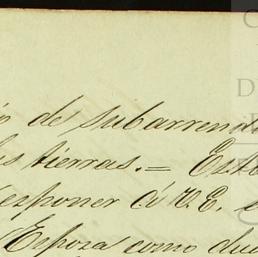 de subarrend
tierras.= Est
esponer á V.E.
Esposa como due